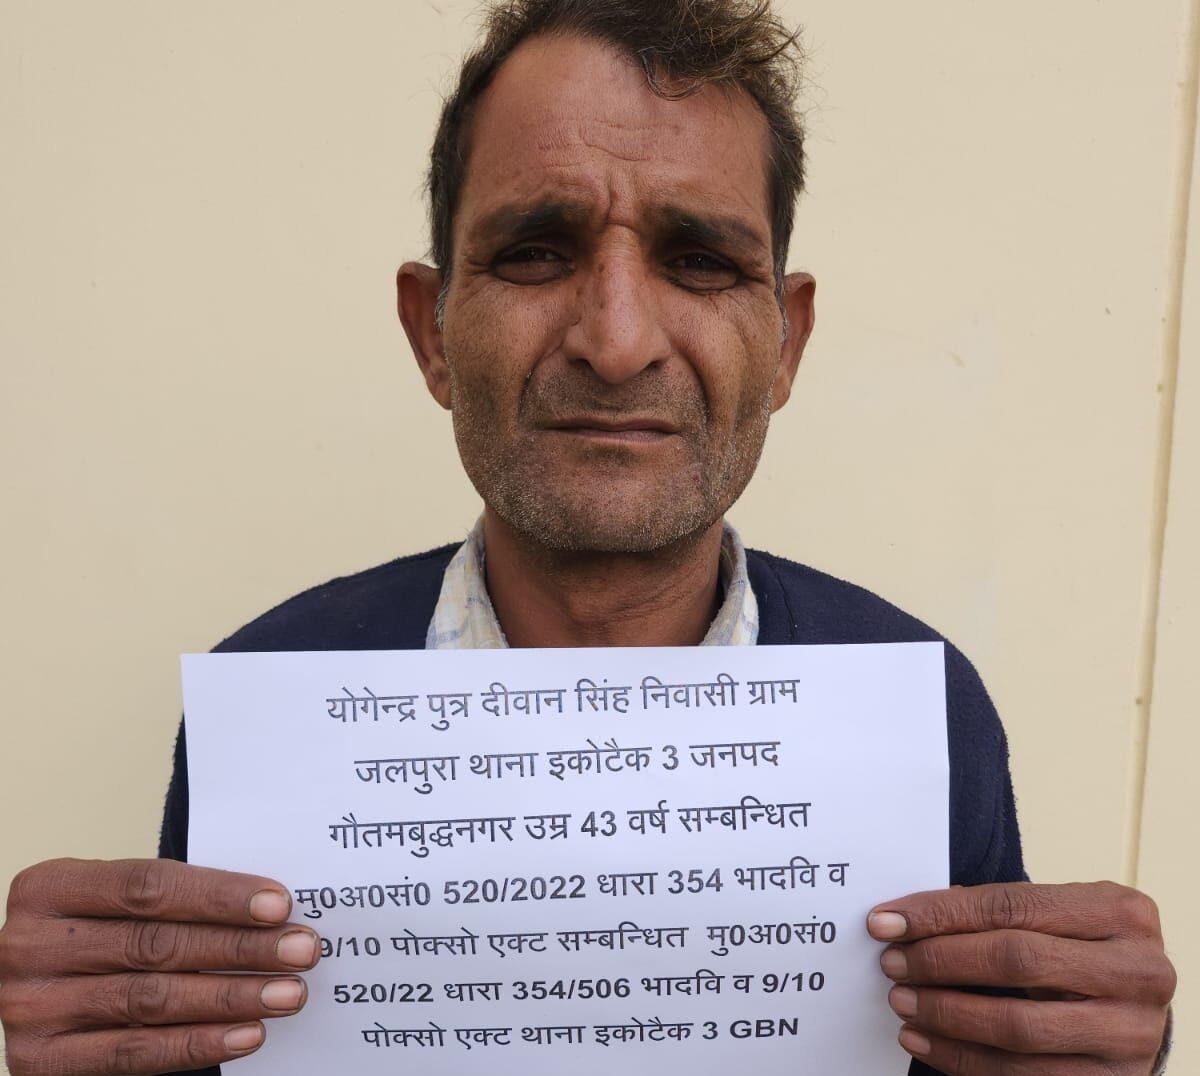 योगेन्द्र पुत्र दीवान सिंह निवासी ग्राम
जलपुरा थाना इकोटैक 3 जनपद
गौतमबुद्धनगर उम्र 43 वर्ष सम्बन्धित
मु0अ0सं0 520/2022 धारा 354 भादवि व
9/10 पोक्सो एक्ट सम्बन्धित मु0अ0सं0
520/22 धारा 354/506 भादवि व 9/10
पोक्सो एक्ट थाना इकोटैक 3 GBN